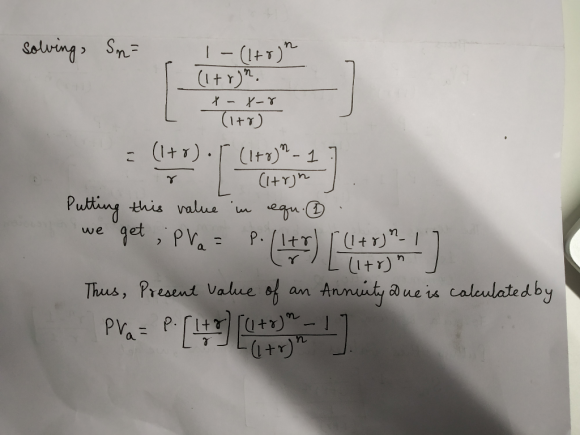 Solving, Sn = [ (1 - (1+r)^n / (1+r)^n.) / (1 - 1 - r / (1+r)) ]
= (1+r)/r . [ (1+r)^n - 1 / (1+r)^n ]
Putting this value in equn. ① .
we get, PVa = P. (1+r / r) [ (1+r)^n - 1 / (1+r)^n ]
Thus, Present Value of an Annuity Due is calculated by
PVa = P. [ 1+r / r ] [ (1+r)^n - 1 / (1+r)^n ].